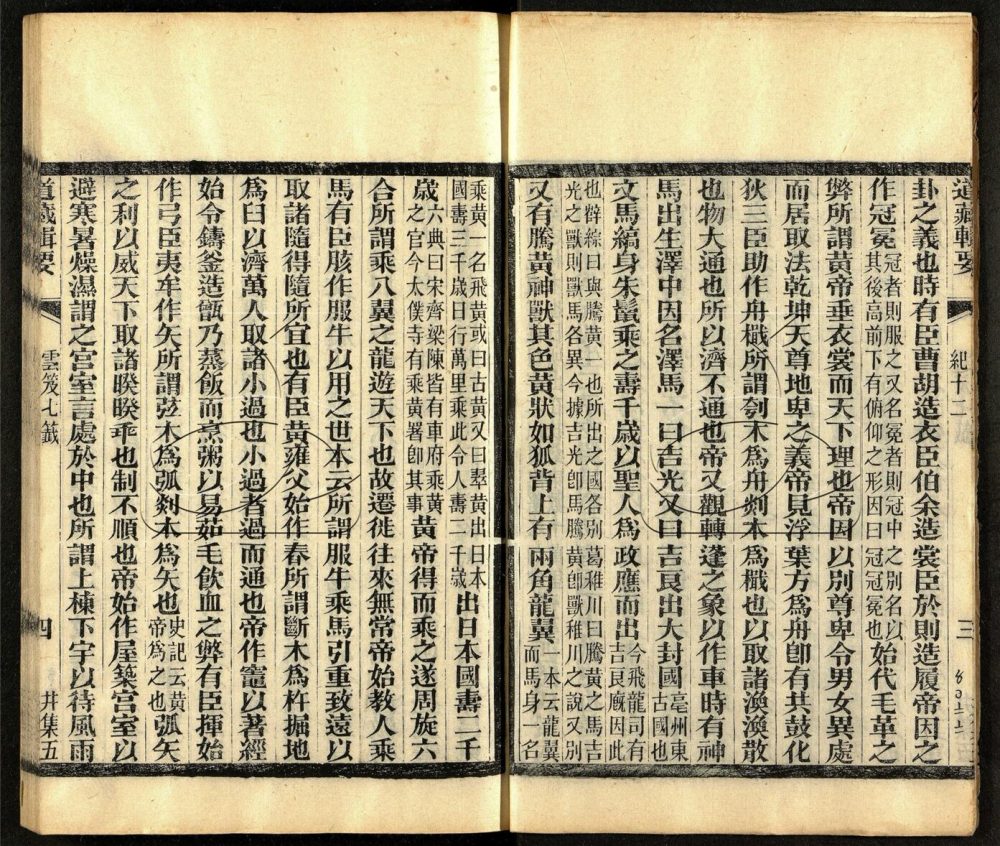 道藏輯要
紀十二
三
卦之義也時有臣曹胡造衣臣伯余造裳臣於則造履帝因之
作冠冕冠者則服之又名冕者則冠中之別名以其後高前下有俯仰之形因曰冠冠冕也始代毛革之
弊所謂黃帝垂衣裳而天下理也帝因以別尊卑令男女異處
而居取法乾坤天尊地卑之義帝見浮葉方為舟卽有共鼓化
狄三臣助作舟檝所謂刳木爲舟剡木爲檝也以取諸渙渙散
也物大通也所以濟不通也帝又觀轉蓬之象以作車時有神
馬出生澤中因名澤馬一曰吉光又曰吉良出大封國亳州東古國也
文馬縞身朱鬣乘之壽千歲以聖人爲政應而出今飛龍司有吉良廐因此
也薛綜曰與騰黃一也所出之國各別葛稚川曰騰黃之馬吉光之獸則獸馬各異今據吉光卽馬騰黃卽獸稚川之說又別
又有騰黃神獸其色黃狀如狐背上有兩角龍翼一本云龍翼而馬身一名
乘黃一名飛黃或曰古黃又曰翠黃出日本國壽三千歲日行萬里乘此令人壽二千歲出日本國壽二千
歲六典曰宋齊梁陳皆有車府乘黃之官今太僕寺有乘黃署卽其事黃帝得而乘之遂周旋六
合所謂乘八翼之龍遊天下也故遷徙往來無常帝始教人乘
馬有臣胲作服牛以用之世本云所謂服牛乘馬引重致遠以
取諸隨得隨所宜也有臣黃雍父始作舂所謂斷木爲杵掘地
爲臼以濟萬人取諸小過也小過者過而通也帝作竈以著經
始令鑄釜造甑乃蒸飯而烹粥以易茹毛飲血之弊有臣揮始
作弓臣夷牟作矢所謂弦木爲弧剡木爲矢也史記云黃帝爲之也弧矢
之利以威天下取諸睽睽乖也制不順也帝始作屋築宮室以
避寒暑燥濕謂之宮室言處於中也所謂上棟下宇以待風雨
道藏輯要
雲笈七籤
四
井集五